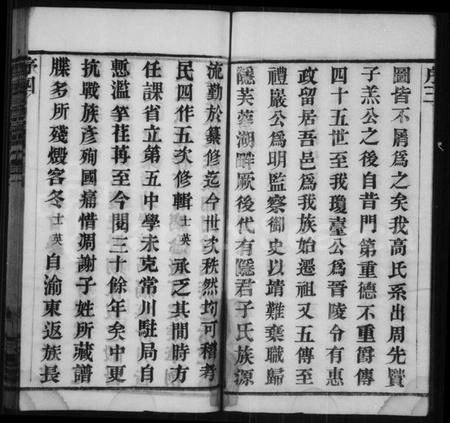 序三
圖皆不屑為之矣我高氏系出周先賢
子羔公之後自昔門第重德不重爵傳
四十五世至我瓊臺公為晉陵令有惠
政留居吾邑為我族始遷祖又五傳至
禮巖公為明監察御史以靖難棄職歸
隱芙蓉湖畔厥後代有隱君子氏族源
流勤於纂修迄今世次秩然均可稽考
民四作五次修輯士英承乏其間時方
任課省立第五中學未克常川駐局自
慙濫竽荏苒至今閱三十餘年矣中更
抗戰族彥殉國痛惜凋謝子姓所藏譜
牒多所殘燬客冬士英自渝東返族長
序四